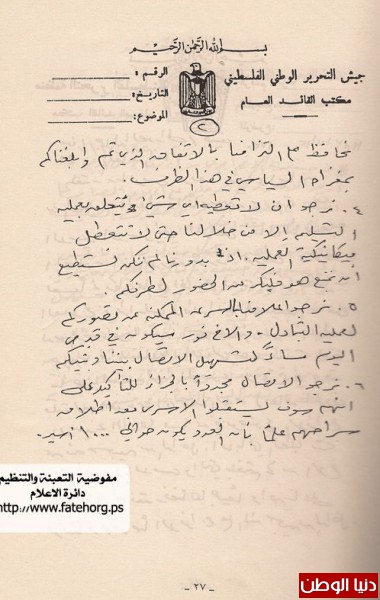 بسم الله الرحمن الرحيم
جيش التحرير الوطني الفلسطيني
مكتب القائد العام
الرقم :
التاريخ :
الموضوع :
٢
نحافظ على التزامنا بالاتفاق الذي تم وابلغناكم
السياسي في هذا الظرف.
٤. نرجو ان لا تعطيه اي شيء يتعلق بعملية
التسليم إلا من خلالنا حتى لا تتعطل
ميكانيكية العملية بدورنا لم نكن نستطيع
أن نمنع هوفليكر من الحضور لطرفكم.
٥. نرجو اعلامنا بالسرعة الممكنة عن تصوركم
لعملية التبادل - والاخ نور سيكون في قبرص
اليوم مساءً لتسهيل الاتصال بيننا وبينكم
٦. نرجو الاتصال مجددًا بالجزائر للتأكيد على
انهم سوف يستقبلوا الاسرى بعد اطلاق
سراحهم علمًا بأن العدد يكون حوالي ١٠٠٠ أسير.
مفوضية التعبئة والتنظيم
دائرة الاعلام
http://www.fatehorg.ps
- ٢٧ -
دنيا الوطن